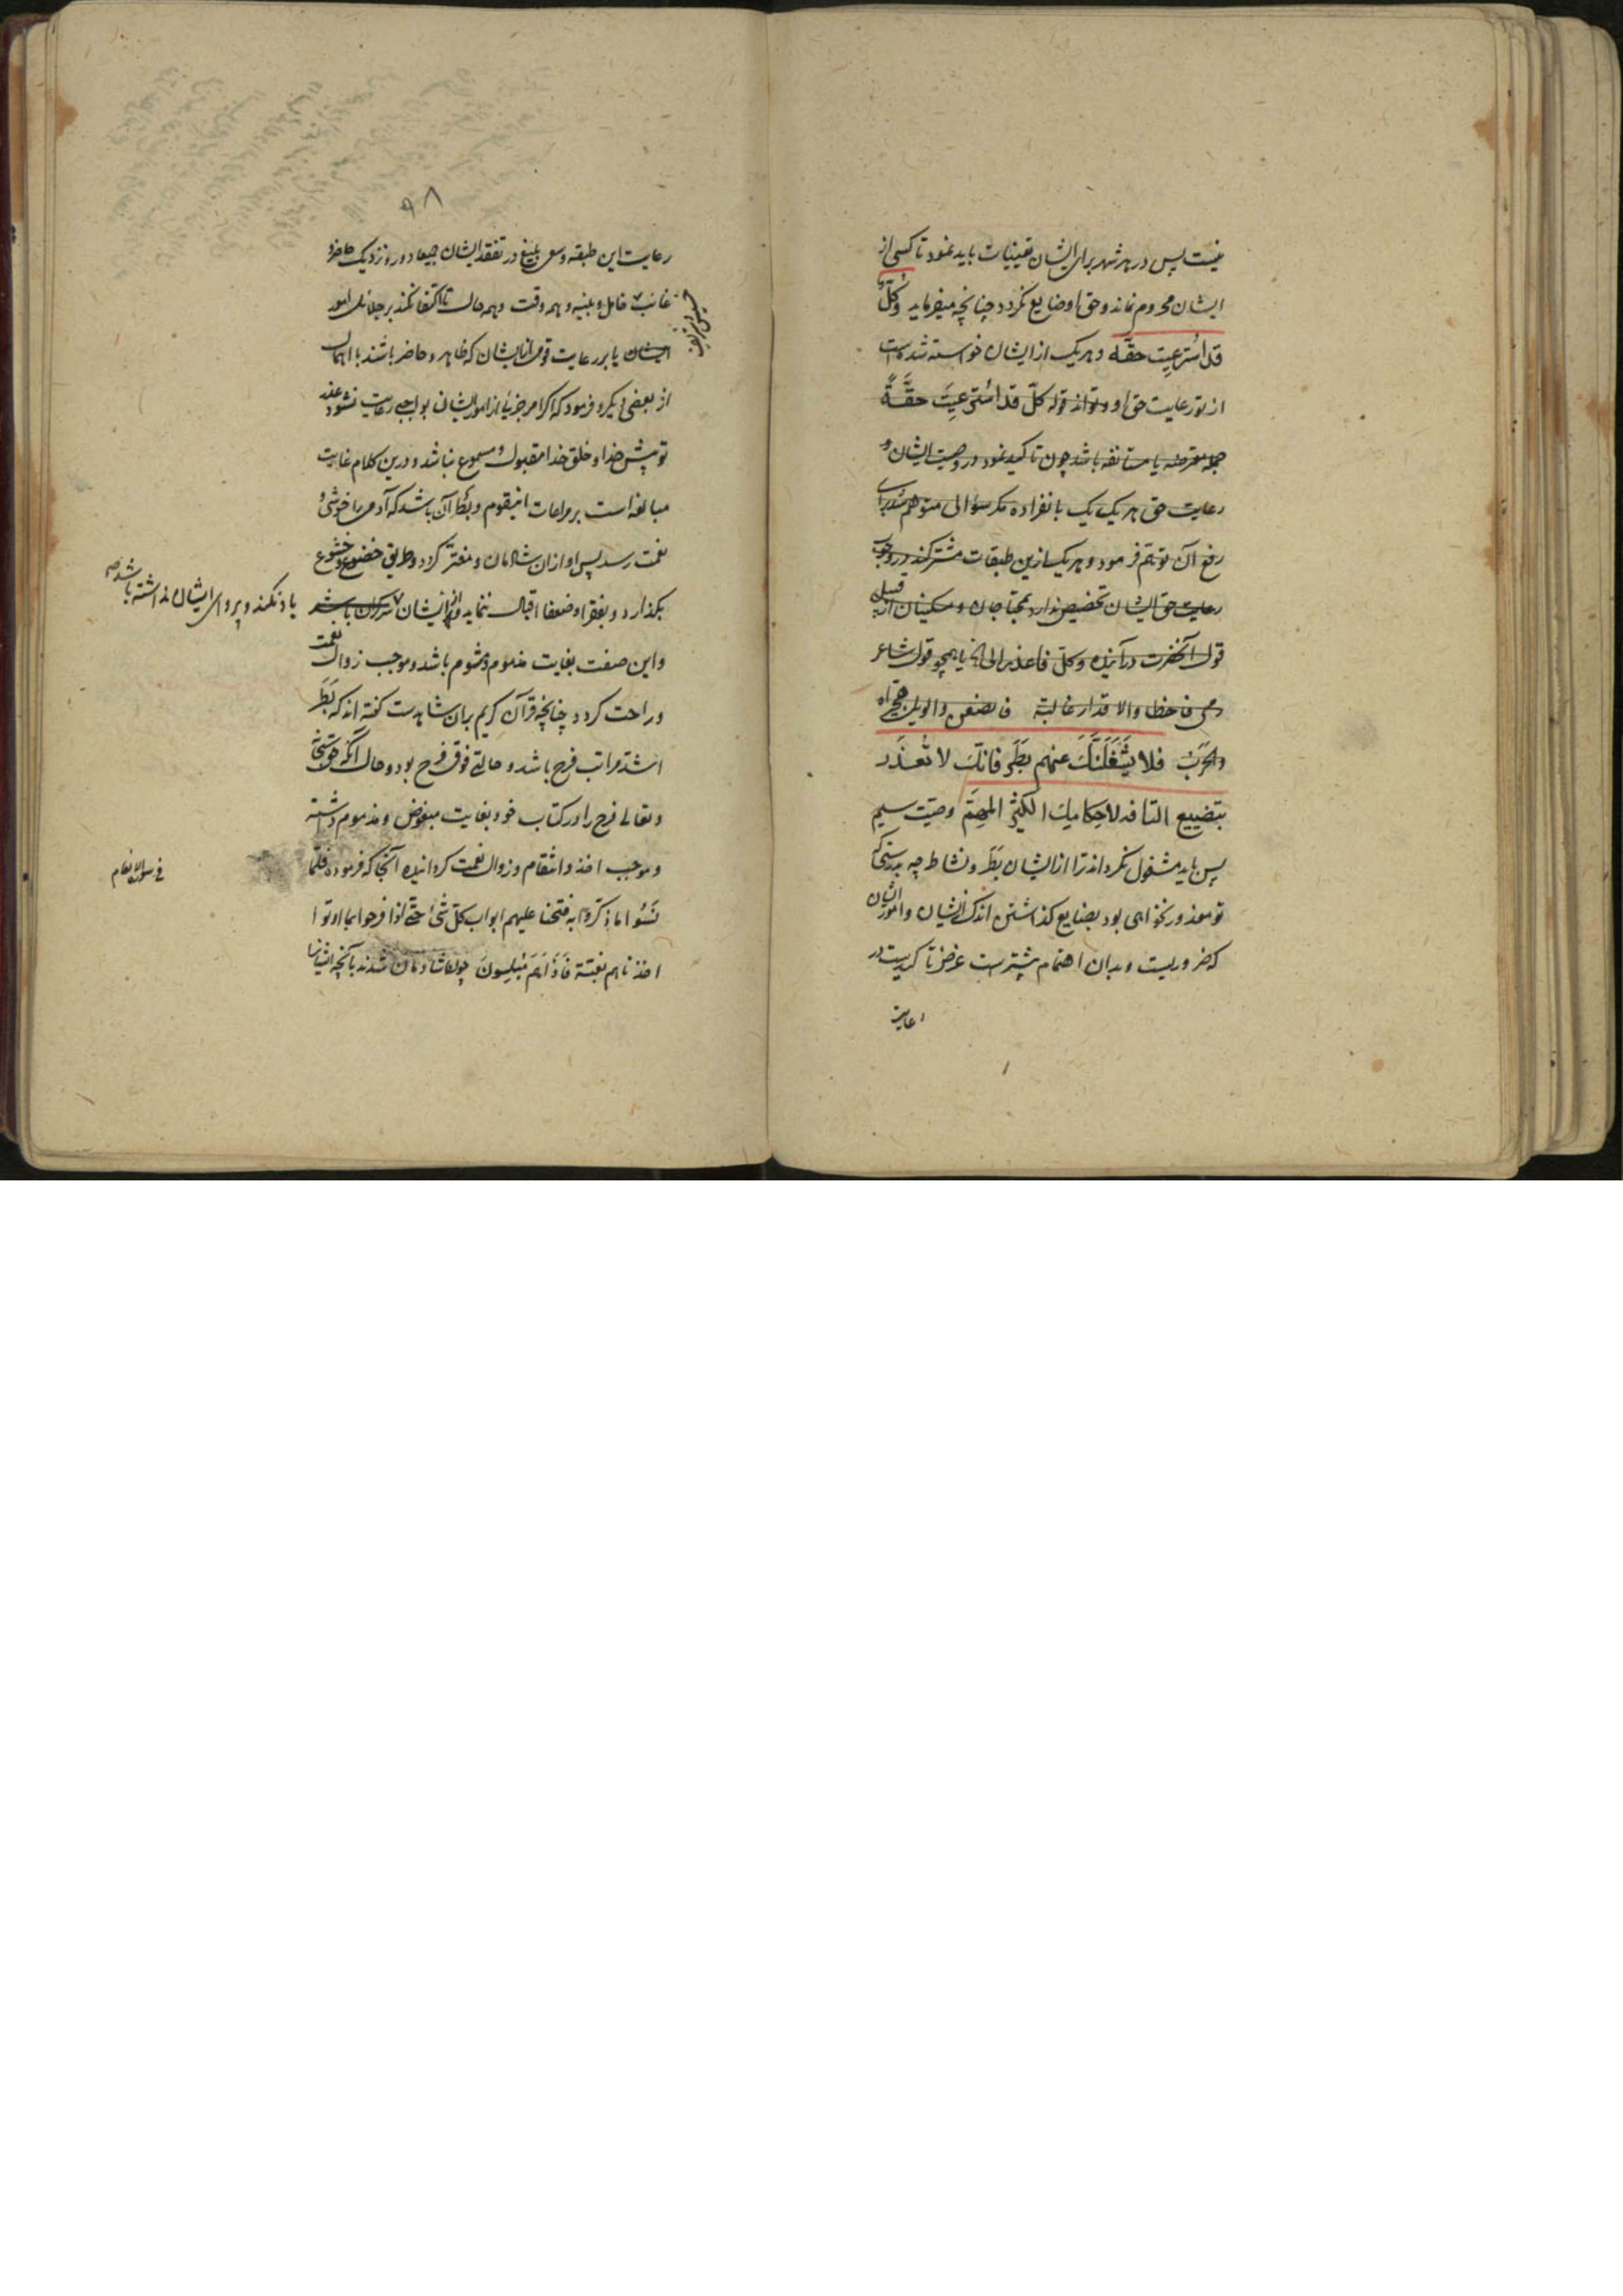 نیست پس در هر شهر برای ایشان تعیینات باید نمود تا کسی از
ایشان محروم نماند و حق او ضایع نکردد چنانچه میفرماید وکلّ
قد استرعیت حقّه و هر یک از ایشان خواسته شده است
از تو رعایت حق او و تواند قوله کلّ قد استرعیتَ حقّهً
جمله معترضه یا مستانفه باشد چون تاکید نمود در وصیت ایشان و
رعایت حق هر یک یک بانفراده مکر سؤالی متوهم شد برای
رفع آن توهّم فرمود و هر یک ازین طبقات مشترکند در وجوب
رعایت حق ایشان تخصیص ندارد بمحتاجان و مسکینان از قبیل
قول آنحضرت در آینده وکلّ فاعذر الی الخ یا همچو قول شاعر
والاقدار غالبة
فلا یشغلنّک عنهم بَطَر فانّک لا تُعذَر
بتضییع التافه لاحکامک الکثیر المهمّ وصیّت سیم
پس باید مشغول نکرداند ترا از ایشان بَطَر و نشاط چه بدرستی که
تو معذور نخواهی بود بضایع کذاشتن اندک ایشان و امور ایشان
که ضروریست و بدان اهتمام بیشترست غرض تاکیدست در
رعایت
۹۸
رعایت این طبقه و سعی بلیغ در تفقد ایشان جمیعا دور و نزدیک حاضر و
غائب خامل و نبیه و همه وقت و همه حال تا اکتفا نکند بر جلائل امور
ایشان یا بر رعایت قومی از ایشان که ظاهر و حاضر باشند با اهمال
از بعضی دیکر و فرمود که اکر امر جزئی از امور ایشان بواجبی رعایت نشود عذر
تو پیش خدا و خلق خدا مقبول و مسموع نباشد و درین کلام غایت
مبالغه است بر مراعات اینقوم و بَطَر آن باشد که آدمی را خوشی و
نعمت رسد پس او از ان شادمان و مغترّ کردد و طریق خضوع و خشوع
بکذارد و بفقرا و ضعفا اقبال ننماید و از ایشان کران باشد
یاد نکند و پروای ایشان نداشته باشد صح
و این صفت بغایت مذموم و مشوم باشد و موجب زوال نعمت
و راحت کردد چنانچه قرآن کریم بران شاهدست کفته اند که بَطَر
اشدّ مراتب فرح باشد و حالتی فوق فرح بود و حال آنکه حق سبحانه
و تعالی فرح را در کتاب خود بغایت مبغوض و مذموم داشته
و موجب اخذ و انتقام و زوال نعمت کردانیده آنجا که فرموده فلمّا
فی سورة الانعام
نَسُوا ما ذکّروا به فتحنا علیهم ابواب کلّ شئ حتّی اذا فرحوا بما اوتوا
اخذناهم بغتة فاذا هم مبلسون چون شادمان شدند بآنچه